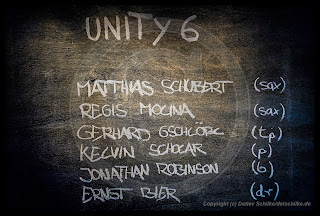 UNITY 6
MATTHIAS SCHUBERT (sax)
REGIS MOLINA (sax)
GERHARD GSCHLÖßL (tp)
KELVIN SHOLAR (p)
JONATHAN ROBINSON (b)
ERNST BIER (dr)
Copyright (c) Detlev Schilke/detschilke.de